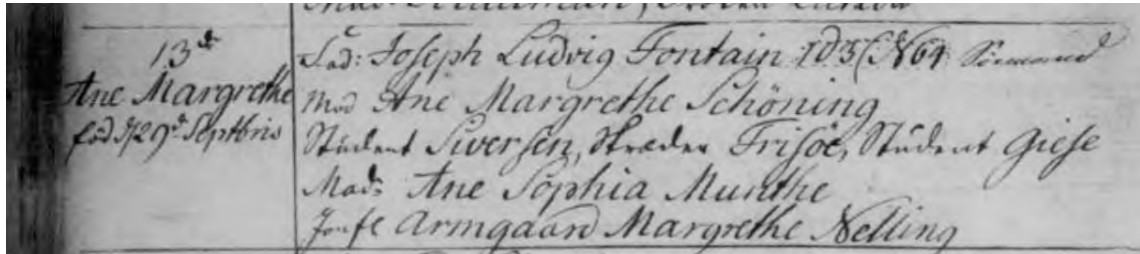 13de
Ane Margrethe
fød d/29de Septbris
Fad: Joseph Ludvig Fontain No 64 Sømand
Mod Ane Margrethe Schöning
Student Siversen, Skræder Frisöe, Student Giese
Mad: Ane Sophia Munthe
Jomfr Armgaard Margrethe Nelling